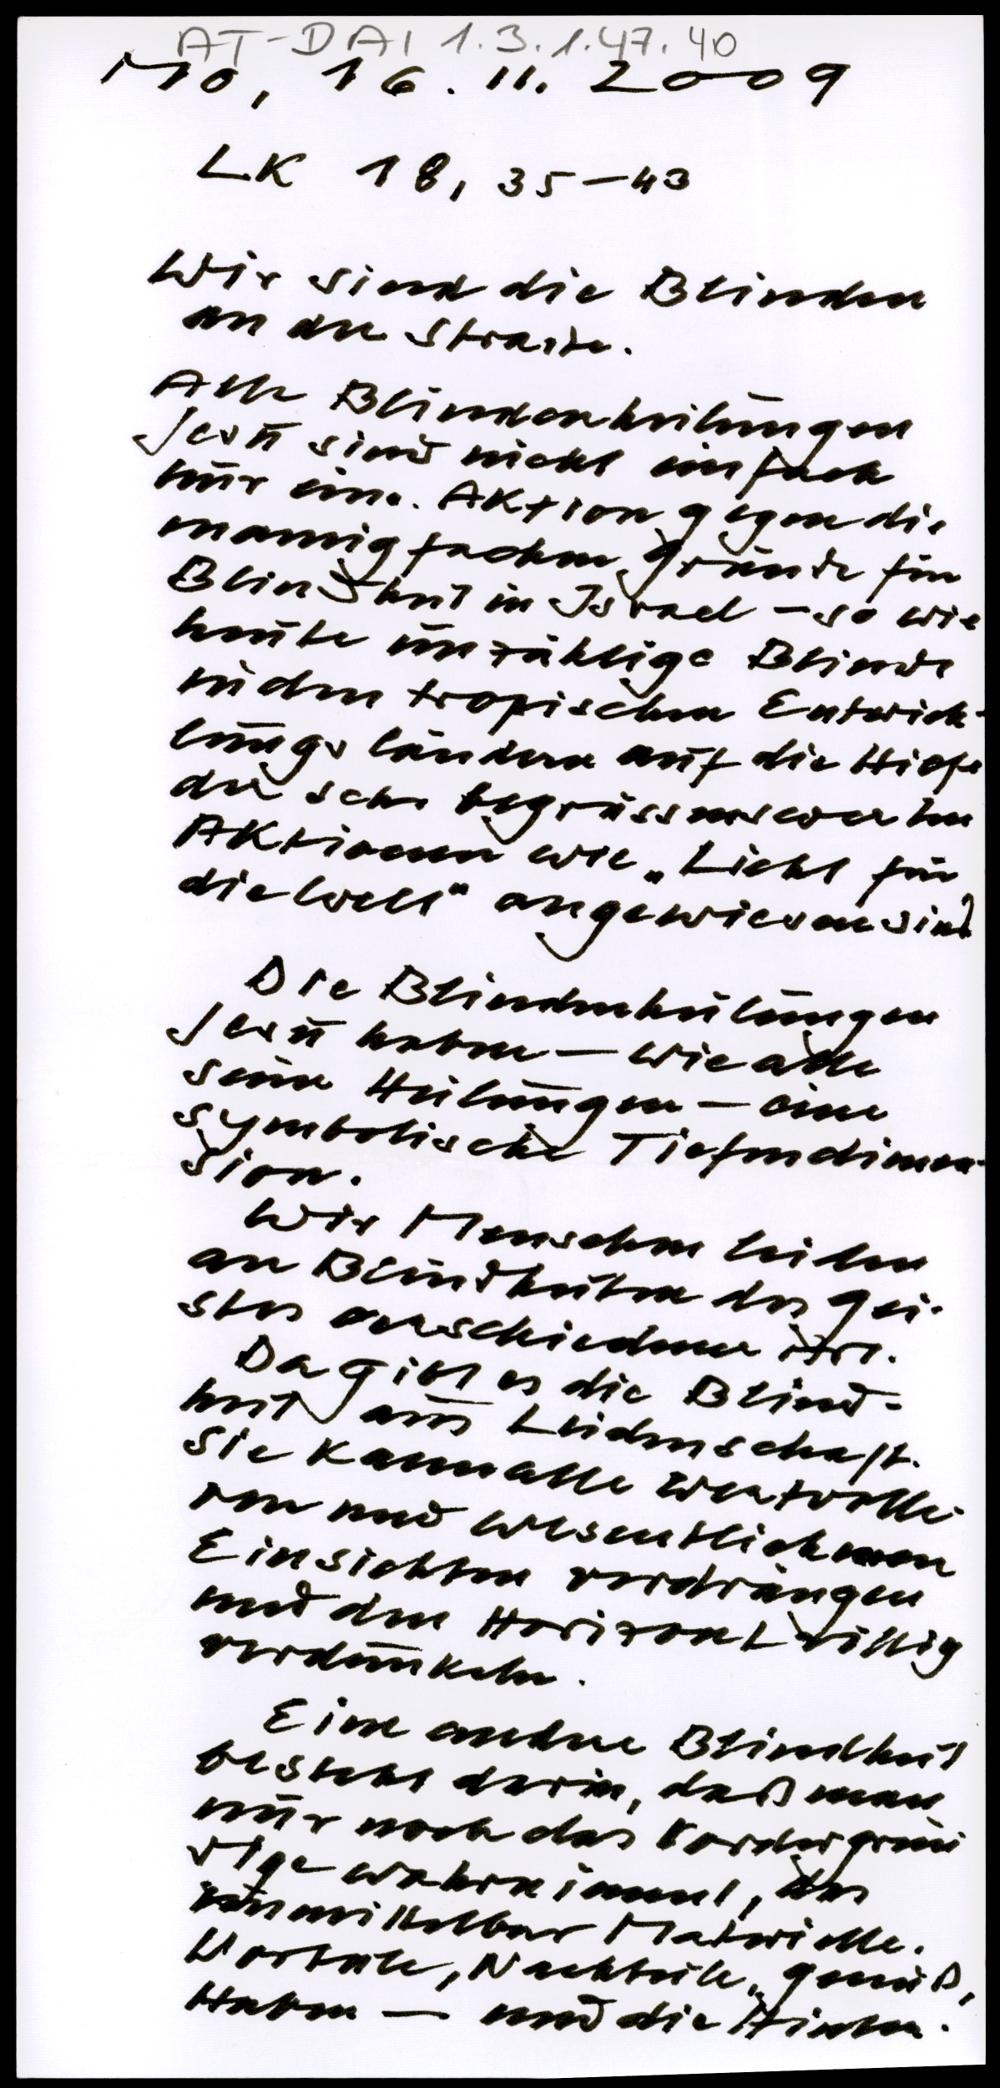 AT-DAI 1.3.1.47.40
Mo, 16. 11. 2009
LK 18, 35-43
Wir sind die Blinden
an der Straße.
Alle Blindenheilungen
Jesu sind nicht einfach
nur eine Aktion gegen die
mannigfachen Gründe für
Blindheit in Israel - so wie
heute unzählige Blinde
in den tropischen Entwick-
lungsländern auf die Hilfe
der sehr begrüssenswerten
Aktionen wie "Licht für
die Welt" angewiesen sind
Die Blindenheilungen
Jesu haben - wie alle
seine Heilungen - eine
symbolische Tiefendimen-
sion.
Wir Menschen leiden
an Blindheiten des Gei-
stes verschiedener Art.
Da gibt es die Blind-
heit aus Leidenschaft.
Sie kann alle wertvolle-
ren und wesentlicheren
Einsichten verdrängen
und den Horizont völlig
verdunkeln.
Eine andere Blindheit
besteht darin, daß man
nur noch das Vordergrün-
dige wahrnimmt, das
unmittelbar Materielle.
Vorteile, Nachteile, Genuß,
Haben - und die Hinter-